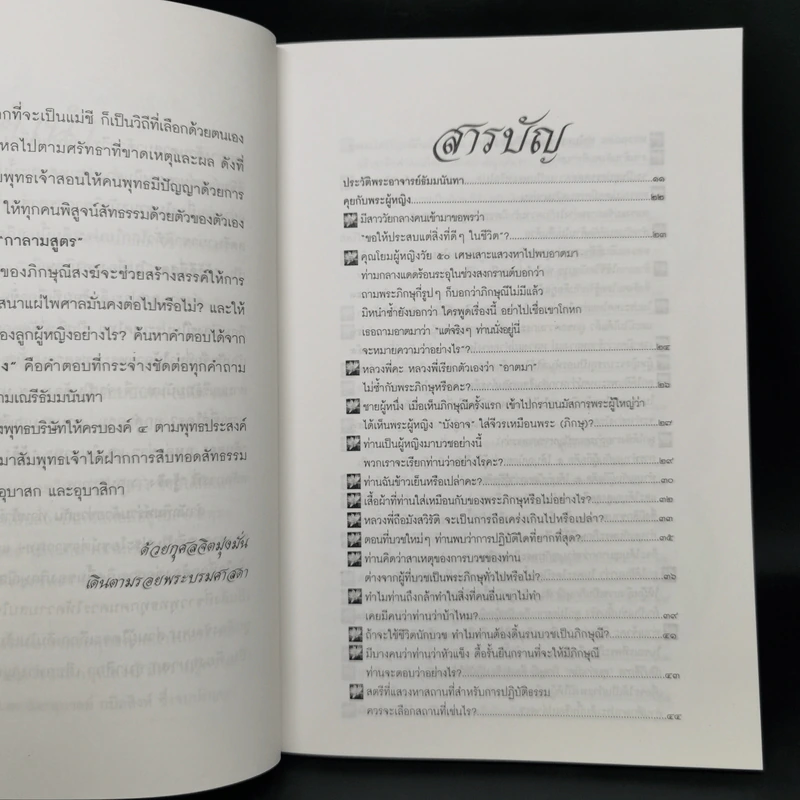 กที่จะเป็นแม่ชี ก็เป็นวิถีที่เลือกด้วยตนเอง
หลไปตามศรัทธาที่ขาดเหตุและผล ดังที่
มพุทธเจ้าสอนให้คนพุทธมีปัญญาด้วยการ
ให้ทุกคนพิสูจน์สัทธรรมด้วยตัวของตัวเอง
"กาลามสูตร"
ของภิกษุณีสงฆ์จะช่วยสร้างสรรค์ให้การ
สนาแผ่ไพศาลมั่นคงต่อไปหรือไม่? และให้
องลูกผู้หญิงอย่างไร? ค้นหาคำตอบได้จาก
ง" คือคำตอบที่กระจ่างชัดต่อทุกคำถาม
ามเณรีธัมมนันทา
งพุทธบริษัทให้ครบองค์ ๔ ตามพุทธประสงค์
มาสัมพุทธเจ้าได้ฝากการสืบทอดสัทธรรม
อุบาสก และอุบาสิกา
ด้วยกุศลจิตมุ่งมั่น
เดินตามรอยพระบรมศาสดา
สารบัญ
ประวัติพระอาจารย์ธัมมนันทา...๑๑
คุยกับพระผู้หญิง...๒๒
มีสาววัยกลางคนเข้ามาขอพรว่า
"ขอให้ประสบแต่สิ่งที่ดีๆ ในชีวิต"?...๒๓
คุณโยมผู้หญิงวัย ๕๐ เศษเสาะแสวงหาไปพบอาตมา
ท่ามกลางแดดร้อนระอุในช่วงสงกรานต์บอกว่า
ถามพระภิกษุกี่รูปๆ ก็บอกว่าภิกษุณีไม่มีแล้ว
มิหนำซ้ำยังบอกว่า ใครพูดเรื่องนี้ อย่าไปเชื่อเขาโกหก
เธอถามอาตมาว่า "แต่จริงๆ ท่านนั่งอยู่นี่
จะหมายความว่าอย่างไร"?...๒๔
หลวงพี่คะ หลวงพี่เรียกตัวเองว่า "อาตมา"
ไม่ซ้ำกับพระภิกษุหรือคะ?...๒๖
ชายผู้หนึ่ง เมื่อเห็นภิกษุณีครั้งแรก เข้าไปกราบนมัสการพระผู้ใหญ่ว่า
ได้เห็นพระผู้หญิง "บังอาจ" ใส่จีวรเหมือนพระ (ภิกษุ)?...๒๗
ท่านเป็นผู้หญิงมาบวชอย่างนี้
พวกเราจะเรียกท่านว่าอย่างไรคะ?...๒๙
ท่านฉันข้าวเย็นหรือเปล่าคะ?...๓๐
เสื้อผ้าที่ท่านใส่เหมือนกับของพระภิกษุหรือไม่อย่างไร?...๓๒
หลวงพี่ถือมังสวิรัติ จะเป็นการถือเคร่งเกินไปหรือเปล่า?...๓๓
ตอนที่บวชใหม่ๆ ท่านพบว่าการปฏิบัติใดที่ยากที่สุด?...๓๕
ท่านคิดว่าสาเหตุของการบวชของท่าน
ต่างจากผู้ที่บวชเป็นพระภิกษุทั่วไปหรือไม่?...๓๖
ทำไมท่านถึงกล้าทำในสิ่งที่คนอื่นเขาไม่ทำ
เคยมีคนว่าท่านว่าบ้าไหม?...๓๙
ถ้าจะใช้ชีวิตนักบวช ทำไมท่านต้องดิ้นรนบวชเป็นภิกษุณี?...๔๑
มีบางคนว่าท่านว่าหัวแข็ง ดื้อรั้นยืนกรานที่จะให้มีภิกษุณี
ท่านจะตอบว่าอย่างไร?...๔๓
สตรีที่แสวงหาสถานที่สำหรับการปฏิบัติธรรม
ควรจะเลือกสถานที่เช่นไร?...๔๔